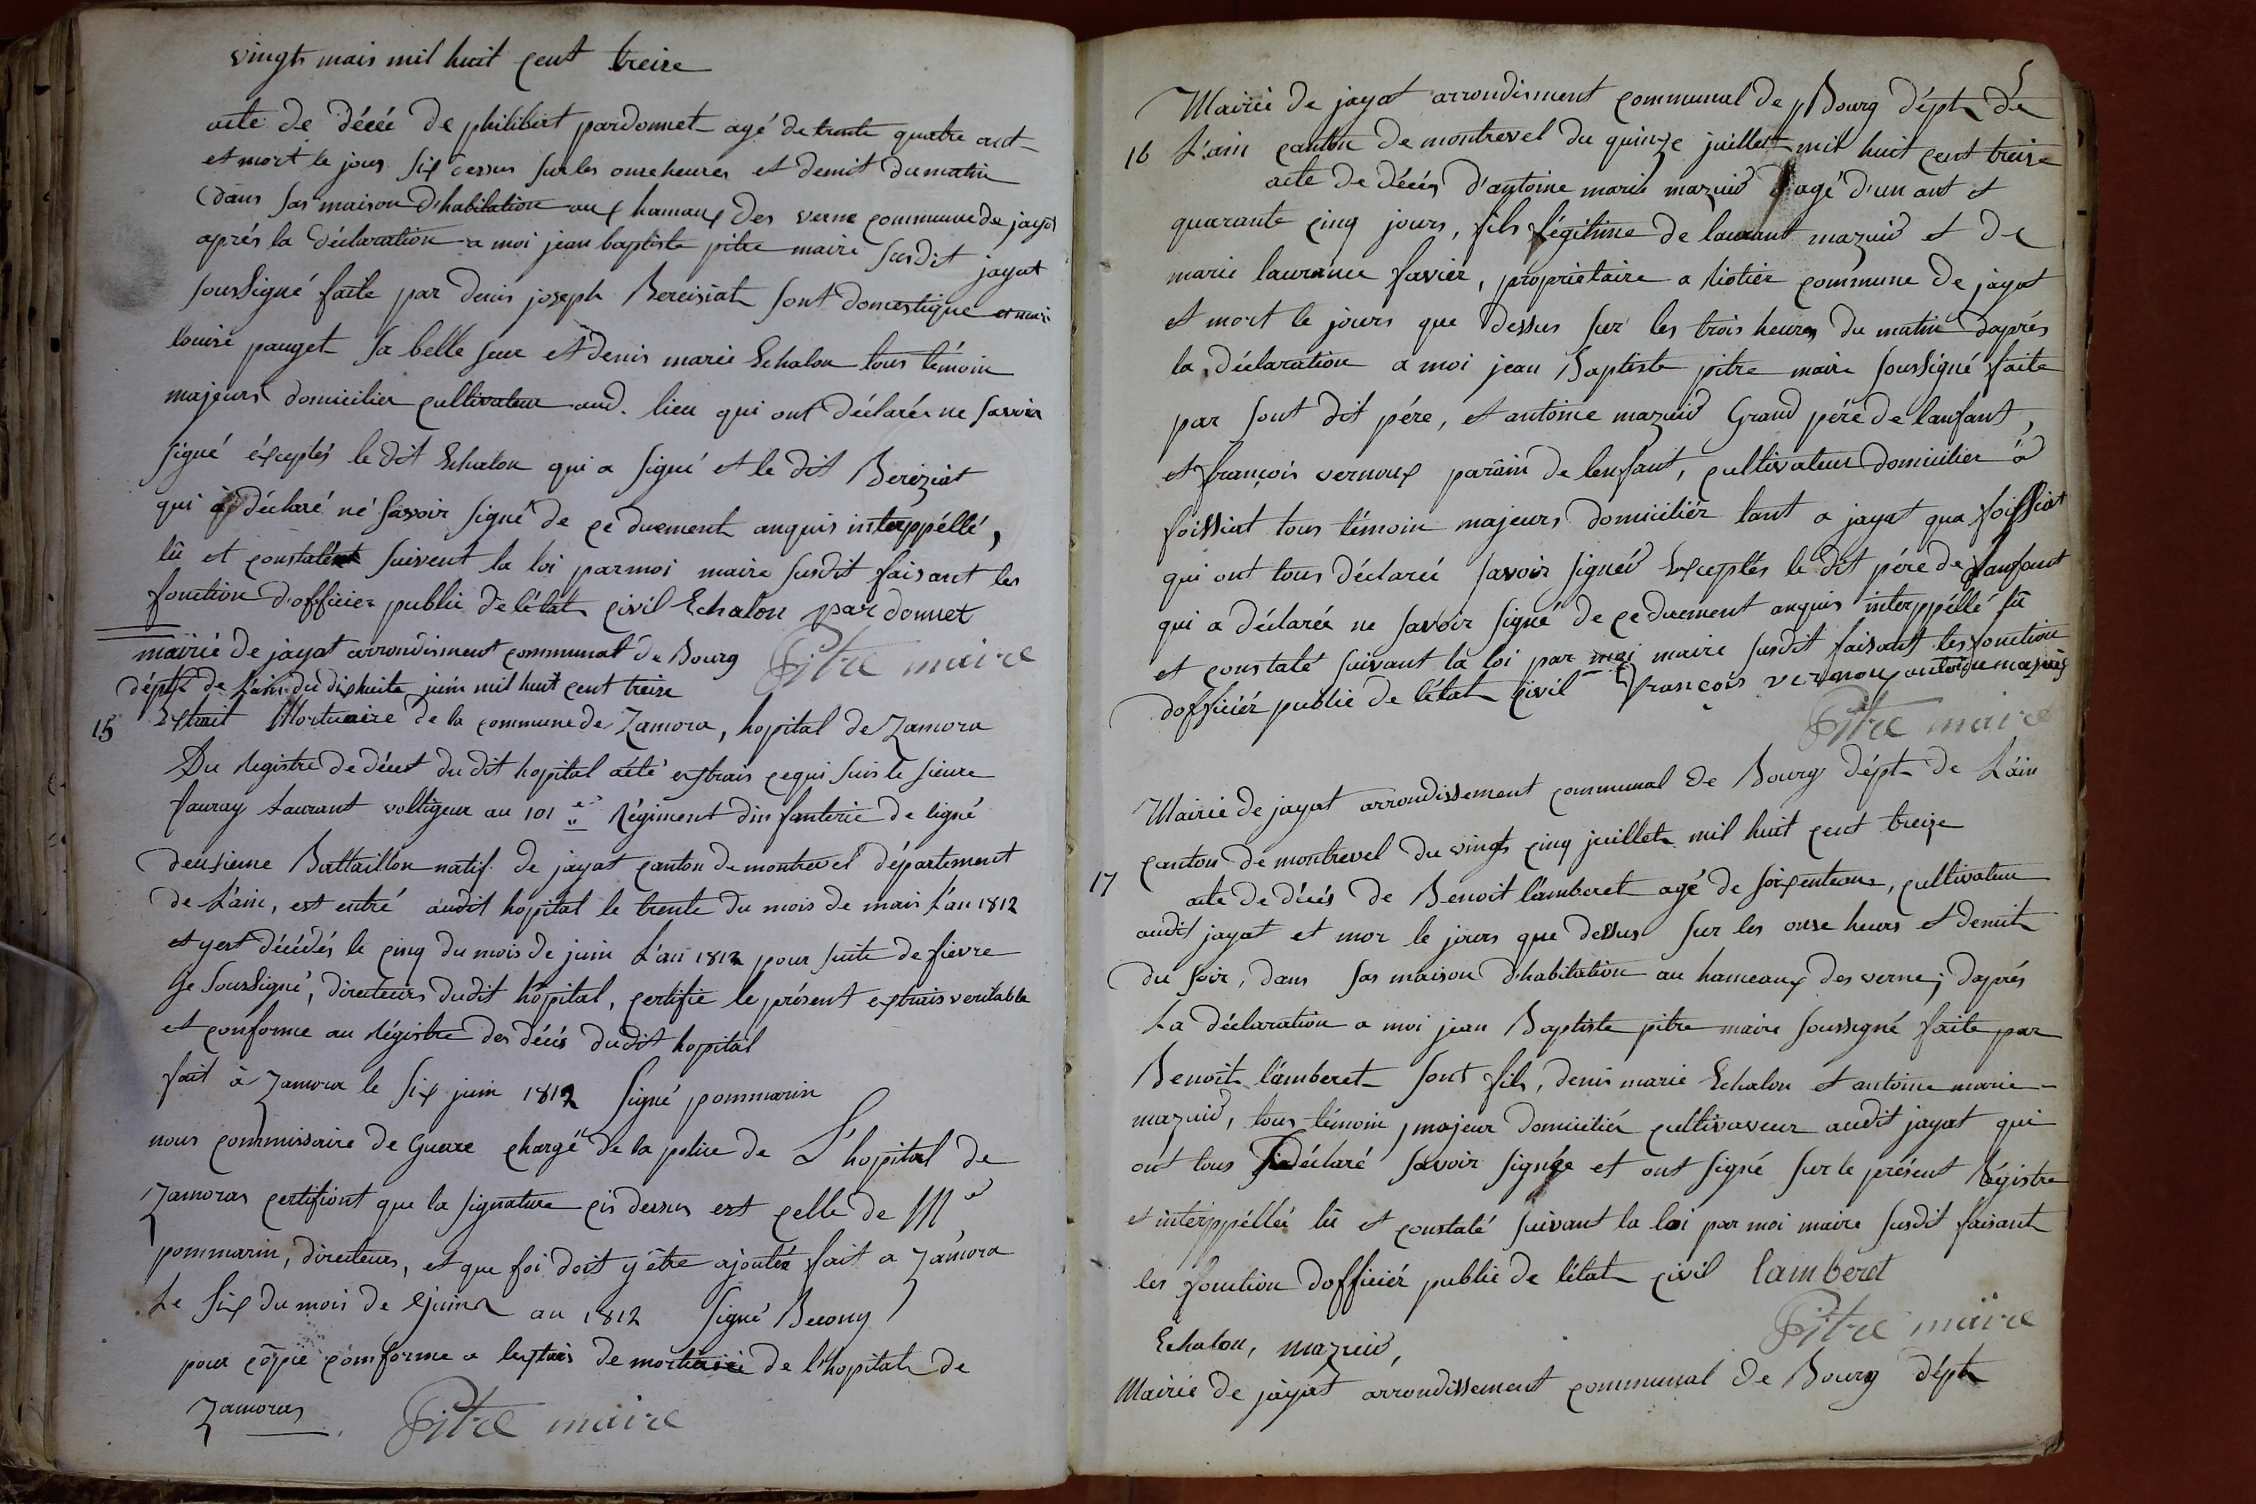 vingts mais mil huit cent treize
acte de décée de philibert pardonnet agé de trente quatre ant
et mort le jour six dessus sur les onse heures et demit du matin
dans sas maison d'habitation aux hamaux des verne commune de jayat
aprés la déclaration a moi jean baptiste pitre maire susdit jayat
soussigné faite par denis joseph Bereisiat sont domestique et mari
louise pauget sa belle seur et denis marie Echalon tous témoin
majeurs domicilier cultivateur aud. lieu qui ont déclarée ne savoir
signé éxceptés le dit Echalon qui a signé et le dit Bereziat
qui a déclaré né savoir signé de ce duement anquis interppéllé,
lû et constaté suivent la loi par moi maire susdit faisant les
fonction d'officier public de l'état civil Echalon pardonnet
mairie de jayat arrondisment communal de Bourg Pitre maire
dépt de L'ain du dix huite juin mil huit cent treize
15 Extrait Mortuaire de la commune de Zamora, hopital de Zamora
Du Registre de décest du dit hopital a été extrais ce qui suis le sieure
fauray Laurant voltigeur au 101 e Régiment dinfanterie de ligné
deusieme Battaillon natif de jayat canton de montrevel département
de L'ain, est entré audit hopital le trente du mois de mais L'an 1812
et y est décédés le cinq du mois de juin L'an 1812 pour suite de fievre
Je soussigné, directeurs dudit hôpital, certifie le présent extrais veritable
et conforme au Régistre des décés dudit hopital
fait à Zamora le six juin 1812 signé pommarin
nous commissaire de Guerre chargé de la police de L'hopital de
Zamoras certifiont que la signature cis dessus est celle de Mr
pommarin, directeurs, et que foi doit y être ajoutér fait a Zamora
Le six du mois de juin an 1812 signé Becony
pour côpie comforme a lextrais de mortuaire de l'hopital de
Zamoras Pitre maire
Mairie de jayat arrondisment communal de Bourg dépt de
16 L'ain canton de montrevel du quinze juillet mil huit cent treize
acte de décés d'antoine marie mazuid agé d'un ant et
quarante cinq jours, fils légitime de laurant mazuid et de
marie laurance favier, propriétaire a liotier commune de jayat
et mort le jours que dessus sur les trois heures du matin daprés
la déclaration a moi jean Baptiste pitre maire soussigné faite
par sont dit pére, et antoine mazuid Grand pére de lanfant,
et françois vernoux parain de lenfant, cultivateur domicilier a
foissiat tous témoin majeurs domicilier tant a jayat qua foissiat
qui ont tous déclarée savoir signér Exceptés le dit pére de lanfant
qui a déclarée ne savoir signé de ce duement anquis interppéllé lû
et constaté suivant la loi par moi maire susdit faisant les fonction
dofficiér public de l'état civil françois vernoux antoine mazuid
Pitre maire
Mairie de jayat arrondissement communal de Bourg dépt de L'ain
canton de montrevel du vingt cinq juillet mil huit cent treize
17 acte de décés de Benoit lamberet agé de soixente ans, cultivateur
audit jayat et mor le jours que dessus sur les onse heurs et demit
du soir, dans sas maison d'habitation au hameaux des verne, daprés
La déclaration a moi jean Baptiste pitre maire soussigné faite par
Benoit lamberet sont fils, denis marie Echalon et antoine marie
mazuid, tous témoin, majeur domicilér cultivaveur audit jayat qui
ont tous déclaré savoir signée et ont signé sur le présent Régistre
et interppéllée lû et constaté suivant la loi par moi maire susdit faisant
les fonction dofficiér public de l'état civil lamberet
Echalon, mazuid, Pitre maire
Mairie de jayat arrondissement communal de Bourg dépt